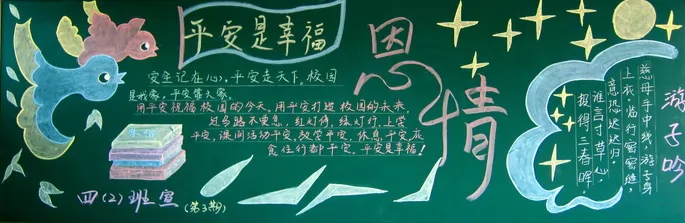 平安是幸福
安全记在心,平安走天下。校园
是我家,平安靠大家。
用平安祝福校园的今天,用平安打造校园的未来。
过马路不要急,红灯停,绿灯行,上学
平安,课间活动平安,放学平安,休息平安,衣
食住行都平安,平安是幸福!
四(2)班宣
(第3期)
恩情
游子吟
慈母手中线,游子身
上衣。临行密密缝,
意恐迟迟归。
谁言寸草心,
报得三春晖。